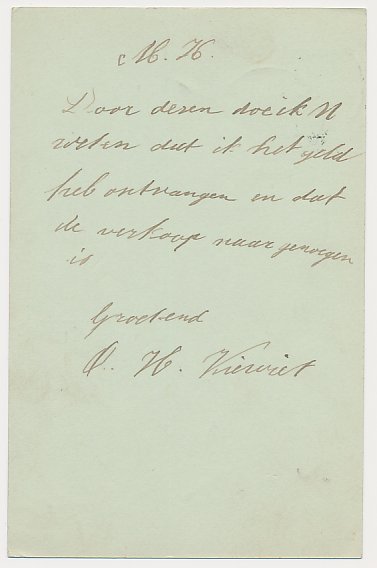 M. H.
Door dezen doe ik U
weten dat ik het geld
heb ontvangen en dat
de verkoop naar genoegen
is
Groetend
H. Kieviet